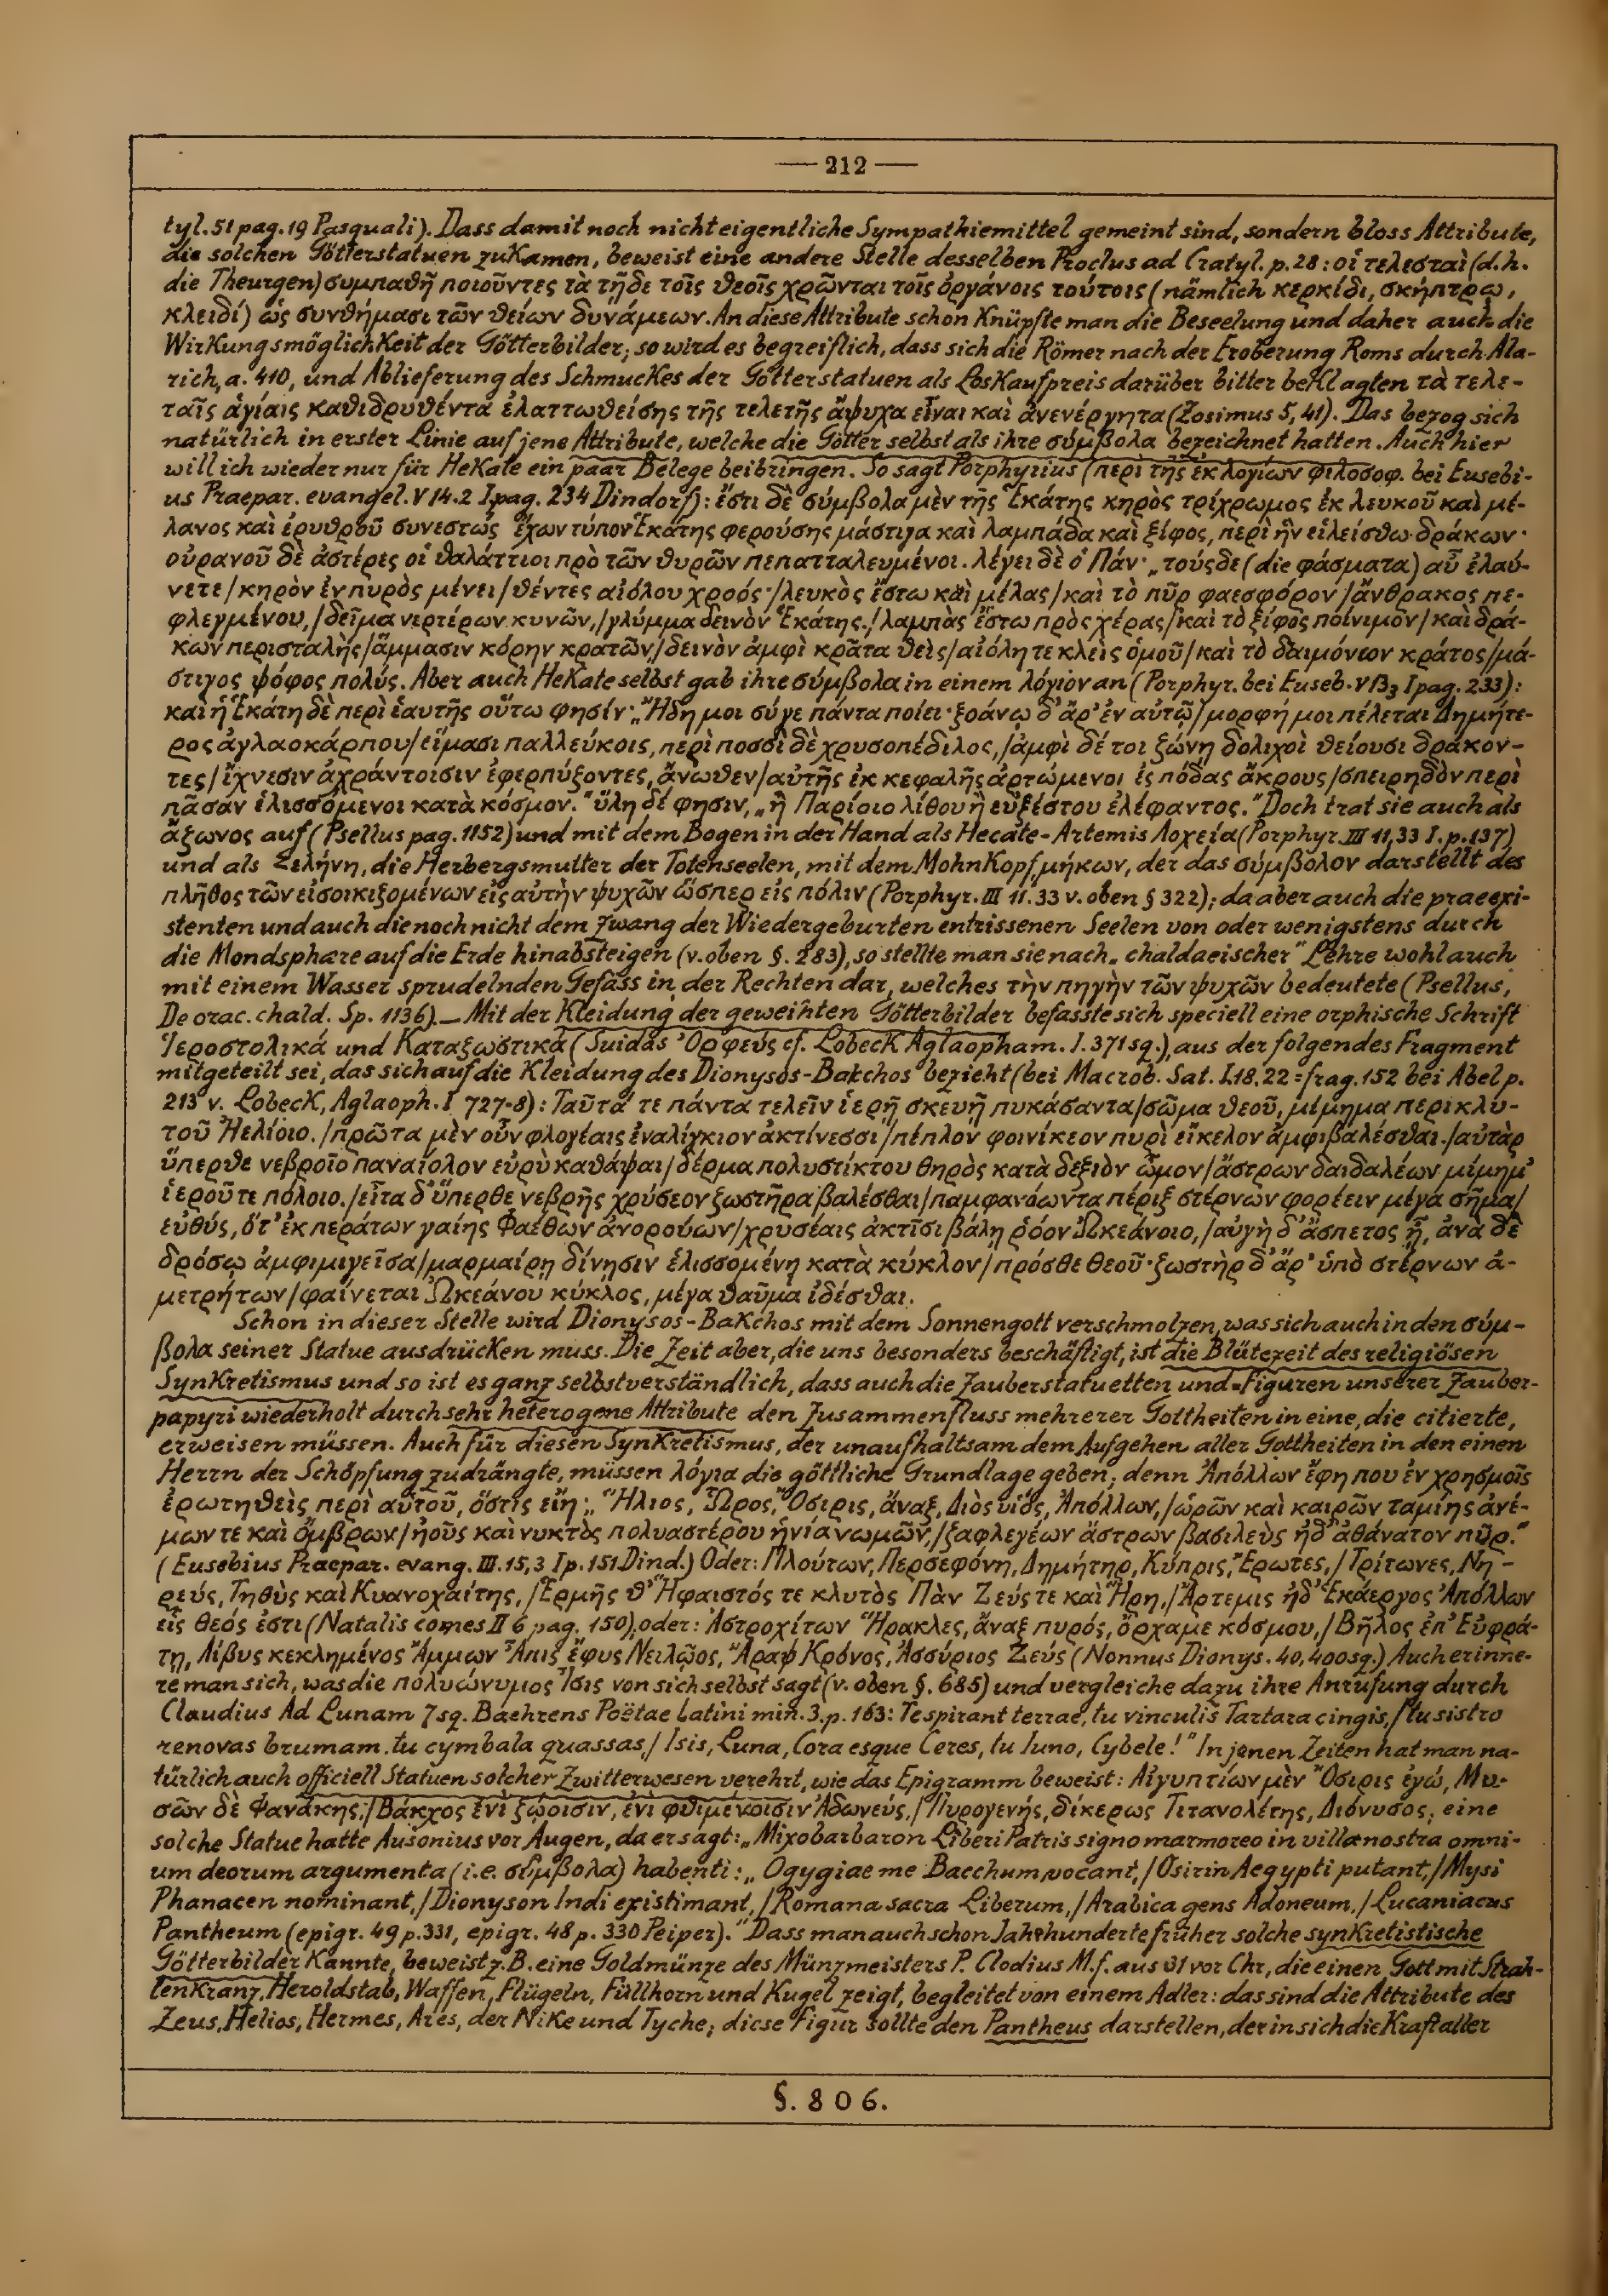 — 212 —
tyl. 51 pag. 19 Pasquali). Dass damit noch nicht eigentliche Sympathiemittel gemeint sind, sondern bloss Attribute,
die solchen Götterstatuen zukamen, beweist eine andere Stelle desselben Proclus ad Cratyl. p. 28: οἱ τελεσταὶ (d. h.
die Theurgen) συμπαθῆ ποιοῦντες τὰ τῇδε τοῖς θεοῖς χρῶνται τοῖς ὀργάνοις τούτοις (nämlich κερκίδι, σκήπτρῳ,
κλειδί) ὡς συνθήμασι τῶν θείων δυνάμεων. An diese Attribute schon knüpfte man die Beseelung und daher auch die
Wirkungsmöglichkeit der Götterbilder; so wird es begreiflich, dass sich die Römer nach der Eroberung Roms durch Ala-
rich, a. 410, und Ablieferung des Schmuckes der Götterstatuen als Loskaufpreis darüber bitter beklagten τὰ τελε-
ταῖς ἁγίαις καθιδρυθέντα ἐλαττωθείσης τῆς τελετῆς ἄψυχα εἶναι καὶ ἀνενέργητα (Zosimus 5, 41). Das bezog sich
natürlich in erster Linie auf jene Attribute, welche die Götter selbst als ihre σύμβολα bezeichnet hatten. Auch hier
will ich wieder nur für Hekate ein paar Belege beibringen. So sagt Porphyrius (περὶ τῆς ἐκ λογίων φιλοσοφ. bei Eusebi-
us Praepar. evangel. V 14.2 I pag. 234 Dindorf): ἔστι δὲ σύμβολα μὲν τῆς Ἑκάτης κηρὸς τρίχρωμος ἐκ λευκοῦ καὶ μέ-
λανος καὶ ἐρυθροῦ συνεστὼς ἔχων τύπον Ἑκάτης φερούσης μάστιγα καὶ λαμπάδα καὶ ξίφος, περὶ ἣν εἱλείσθω δράκων·
οὐρανοῦ δὲ ἀστέρες οἱ θαλάττιοι πρὸ τῶν θυρῶν πεπατταλευμένοι. λέγει δὲ ὁ Πάν· „τούσδε (die φάσματα) αὖ ἐλαύ-
νετε / κηρὸν ἐν πυρὸς μένει / θέντες αἰόλου χροός· / λευκὸς ἔστω καὶ μέλας / καὶ τὸ πῦρ φαεσφόρον / ἄνθρακος πε-
φλεγμένου, / δεῖμα νερτέρων κυνῶν, / γλύμμα δεινὸν Ἑκάτης. / λαμπὰς ἔστω πρὸς χέρας / καὶ τὸ ξίφος ποίνιμον / καὶ δρά-
κων περισταλὴς / ἅμμασιν κόρην κρατῶν, / δεινὸν ἀμφὶ κρᾶτα θεὶς / αἰόλη τε κλεὶς ὁμοῦ / καὶ τὸ δαιμόνων κράτος / μά-
στιγος ψόφος πολύς. Aber auch Hekate selbst gab ihre σύμβολα in einem λόγιον an (Porphyr. bei Euseb. V 13,3 I pag. 233):
καὶ ἡ Ἑκάτη δὲ περὶ ἑαυτῆς οὕτω φησίν· „Ἤδη μοι σύγε πάντα ποίει· ξοάνῳ δ’ ἄρ’ ἐν αὐτῷ / μορφή μοι πέλεται Δημήτε-
ρος ἀγλαοκάρπου / εἵμασι παλλεύκοις, περὶ ποσσὶ δὲ χρυσοπέδιλος, / ἀμφὶ δέ τοι ζώνῃ δολιχοὶ θείουσι δράκον-
τες / ἴχνεσιν ἀχράντοισιν ἐφερπύζοντες, ἄνωθεν / αὐτῆς ἐκ κεφαλῆς ἀρτώμενοι ἐς πόδας ἄκρους / σπειρηδὸν περὶ
πᾶσαν ἑλισσόμενοι κατὰ κόσμον.“ ὕλη δέ φησιν, „ἢ Παρίοιο λίθου ἢ εὐξέστου ἐλέφαντος.“ Doch trat sie auch als
ἄζωνος auf (Psellus pag. 1152) und mit dem Bogen in der Hand als Hecate-Artemis Λοχεία (Porphyr. III 11,33 I. p. 137)
und als Σελήνη, die Herbergsmutter der Totenseelen, mit dem Mohnkopf, μήκων, der das σύμβολον darstellt des
πλῆθος τῶν εἰσοικιζομένων εἰς αὐτὴν ψυχῶν ὥσπερ εἰς πόλιν (Porphyr. III 11. 33 v. oben § 322); da aber auch die praeexi-
stenten und auch die noch nicht dem Zwang der Wiedergeburten entrissenen Seelen von oder wenigstens durch
die Mondsphaere auf die Erde hinabsteigen (v. oben §. 283), so stellte man sie nach „chaldaeischer“ Lehre wohl auch
mit einem Wasser sprudelnden Gefäss in der Rechten dar, welches τὴν πηγὴν τῶν ψυχῶν bedeutete (Psellus,
De orac. chald. Sp. 1136). — Mit der Kleidung der geweihten Götterbilder befasste sich speciell eine orphische Schrift
Ἱεροστολικά und Καταζωστικά (Suidas Ὀρφεύς cf. Lobeck Aglaopham. I. 371 sq.), aus der folgendes Fragment
mitgeteilt sei, das sich auf die Kleidung des Dionysos-Bakchos bezieht (bei Macrob. Sat. I.18.22 = frag. 152 bei Abel p.
213 v. Lobeck, Aglaoph. I 727-8): Ταῦτά τε πάντα τελεῖν ἱερῇ σκευῇ πυκάσαντα / σῶμα θεοῦ, μίμημα περικλυ-
τοῦ Ἠελίοιο. / πρῶτα μὲν οὖν φλογέαις ἐναλίγκιον ἀκτίνεσσι / πέπλον φοινίκεον πυρὶ εἴκελον ἀμφιβαλέσθαι. / αὐτὰρ
ὕπερθε νεβροῖο παναίολον εὐρὺ καθάψαι / δέρμα πολυστίκτου θηρὸς κατὰ δεξιὸν ὦμον / ἄστρων δαιδαλέων μίμημ’
ἱεροῦ τε πόλοιο. / εἶτα δ’ ὕπερθε νεβρῆς χρύσεον ζωστῆρα βαλέσθαι / παμφανόωντα πέριξ στέρνων φορέειν μέγα σῆμα /
εὐθύς, ὅτ’ ἐκ περάτων γαίης Φαέθων ἀνορούων / χρυσέαις ἀκτῖσι βάλῃ ῥόον Ὠκεάνοιο, / αὐγὴ δ’ ἄσπετος ᾖ, ἀνὰ δὲ
δρόσῳ ἀμφιμιγεῖσα / μαρμαίρῃ δίνῃσιν ἑλισσομένη κατὰ κύκλον / πρόσθε θεοῦ· ζωστὴρ δ’ ἄρ’ ὑπὸ στέρνων ἀ-
μετρήτων / φαίνεται Ὠκεάνου κύκλος, μέγα θαῦμα ἰδέσθαι.
Schon in dieser Stelle wird Dionysos-Bakchos mit dem Sonnengott verschmolzen, was sich auch in den σύμ-
βολα seiner Statue ausdrücken muss. Die Zeit aber, die uns besonders beschäftigt, ist die Blütezeit des religiösen
Synkretismus und so ist es ganz selbstverständlich, dass auch die Zauberstatuetten und -Figuren unserer Zauber-
papyri wiederholt durch sehr heterogene Attribute den Zusammenfluss mehrerer Gottheiten in eine, die citierte,
erweisen müssen. Auch für diesen Synkretismus, der unaufhaltsam dem Aufgehen aller Gottheiten in den einen
Herrn der Schöpfung zudrängte, müssen λόγια die göttliche Grundlage geben; denn Ἀπόλλων ἔφη που ἐν χρησμοῖς
ἐρωτηθεὶς περὶ αὑτοῦ, ὅστις εἴη: „Ἥλιος, Ὧρος, Ὄσιρις, ἄναξ, Διὸς υἱός, Ἀπόλλων, / ὡρῶν καὶ καιρῶν ταμίης ἀνέ-
μων τε καὶ ὄμβρων / ἠοῦς καὶ νυκτὸς πολυαστέρου ἡνία νωμῶν, / ζαφλεγέων ἄστρων βασιλεὺς ἠδ’ ἀθάνατον πῦρ.“
(Eusebius Praepar. evang. III. 15,3 I p. 151 Dind.) Oder: Πλούτων, Περσεφόνη, Δημήτηρ, Κύπρις, Ἔρωτες, / Τρίτωνες, Νη-
ρεύς, Τηθὺς καὶ Κυανοχαίτης, / Ἑρμῆς θ’ Ἥφαιστός τε κλυτὸς Πὰν Ζεύς τε καὶ Ἥρη, / Ἄρτεμις ἠδ’ Ἑκάεργος Ἀπόλλων
εἷς θεός ἐστι (Natalis comes II 6 pag. 150), oder: Ἀστροχίτων Ἥρακλες, ἄναξ πυρός, ὄρχαμε κόσμου, / Βῆλος ἐπ’ Εὐφρά-
τη, Λίβυς κεκλημένος Ἄμμων Ἆπις ἔφυς Νειλῷος, Ἄραψ Κρόνος, Ἀσσύριος Ζεύς (Nonnus Dionys. 40, 400 sq.) Auch erinne-
re man sich, was die πολυώνυμος Ἶσις von sich selbst sagt (v. oben §. 685) und vergleiche dazu ihre Anrufung durch
Claudius Ad Lunam 7 sq. Baehrens Poëtae latini min. 3, p. 163: Te spirant terrae, tu vinculis Tartara cingis, / tu sistro
renovas brumam. tu cymbala quassas, / Isis, Luna, Cora esque Ceres, tu Iuno, Cybele!“ In jenen Zeiten hat man na-
türlich auch officiell Statuen solcher Zwitterwesen verehrt, wie das Epigramm beweist: Αἰγυπτίων μὲν Ὄσιρις ἐγώ, Μυ-
σῶν δὲ Φανάκης, / Βάκχος ἐνὶ ζῴοισιν, ἐνὶ φθιμένοισιν Ἀδωνεύς, / Πυρογενής, δίκερως Τιτανολέτης, Διόνυσος; eine
solche Statue hatte Ausonius vor Augen, da er sagt: „Mixobarbaron Liberi Patris signo marmoreo in villa nostra omni-
um deorum argumenta (i.e. σύμβολα) habenti: „Ogygiae me Bacchum vocant, / Osirin Aegypti putant, / Mysi
Phanacen nominant, / Dionyson Indi existimant, / Romana sacra Liberum, / Arabica gens Adoneum, / Lucaniacus
Pantheum (epigr. 49 p. 331, epigr. 48 p. 330 Peiper).“ Dass man auch schon Jahrhunderte früher solche synkretistische
Götterbilder kannte, beweist z. B. eine Goldmünze des Münzmeisters P. Clodius M. f. aus 31 vor Chr., die einen Gott mit Strah-
lenkranz, Heroldstab, Waffen, Flügeln, Füllhorn und Kugel zeigt, begleitet von einem Adler: das sind die Attribute des
Zeus, Helios, Hermes, Ares, der Nike und Tyche; diese Figur sollte den Pantheus darstellen, der in sich die Kraft aller
§. 806.